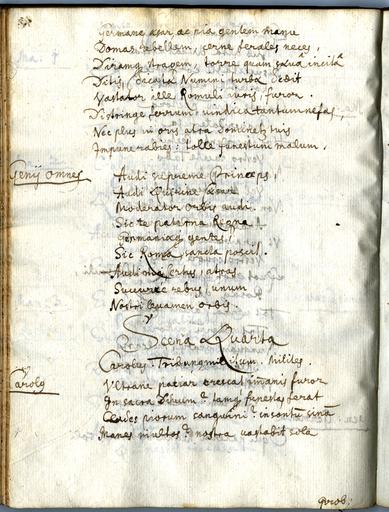 Germane Cæsar, ac pia gentem manu
Doma rebellem, cerne ferales neces,
Diramq stragem, torre quam sæva incitâ
Ditis, sacrata Numini turba dedit
Vastator ille Romuli iuris, furor.
Distringe ferrum: vindica tantum nefas,
Nec plus in oris atra
Impune rabies: tolle funestum malum.
Genij omnes
Audi supreme Princeps,
Audi Cæsar
Moderator orbis audi.
Sic te paterna Regna
Germaniæq gentes,
Sic Roma sancta poscit.
Audi atras
Succurre rebus, unum
Nostri levamen orbis.
Scena Quarta
Carolus. Tribuni militum. Milites.
Carolq
Ultrane patiar crescat immanis furor
In sacra Divûm? tamq funestas ferat
Clades piorum sanguini? insontum sinâ
Manes inultos? nostra vastabit sola